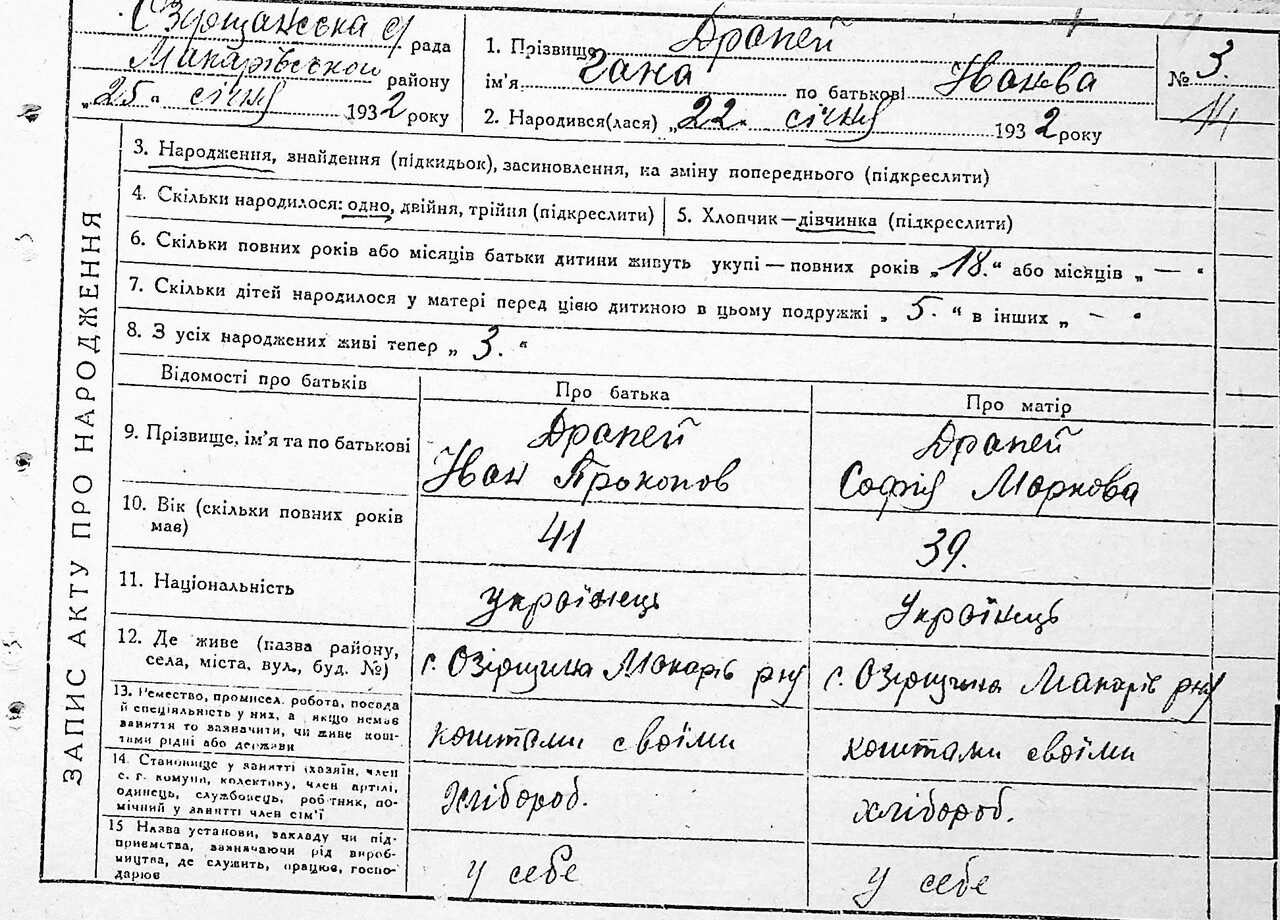 Озірщанська с/рада
Макарівської району
„25“ січня 1932 року
1. Прізвище Драпей
ім'я Гана по батькові Іванова
2. Народився(лася) „22“ січня 1932 року
№ 3.
14
ЗАПИС АКТУ ПРО НАРОДЖЕННЯ
3. Народження, знайдення (підкидьок), засиновлення, на зміну попереднього (підкреслити)
4. Скільки народилося: одно, двійня, трійня (підкреслити)
5. Хлопчик—дівчинка (підкреслити)
6. Скільки повних років або місяців батьки дитини живуть укупі — повних років „18.“ або місяців „—“
7. Скільки дітей народилося у матері перед цією дитиною в цьому подружжі „5.“ в інших „—“
8. З усіх народжених живі тепер „3.“
Відомості про батьків
Про батька
Про матір
9. Прізвище, ім'я та по батькові
Драпей
Іван Прокопов
Драпей
Софія Маркова
10. Вік (скільки повних років
мав)
41
39.
11. Національність
Українець
Українець
12. Де живе (назва району,
села, міста, вул., буд. №)
с. Озірщина Макарів р-ну
с. Озірщина Макарів р-ну
13. Ремество, промисел, робота, посада
й спеціяльність у них, а якщо немає
заняття то зазначити, чи живе кош-
тами рідні або держави
коштами своїми
коштами своїми
14. Становище у занятті (хазяїн, член
с. г. комуни, колективу, член артілі,
одинець, службовець, робітник, по-
мічний у занятті член сім'ї
Хлібороб.
хлібороб.
15 Назва установи, закладу чи під-
приємства, зазначаючи рід вироб-
ництва, де служить, працює, госпо-
дарює
у себе
у себе